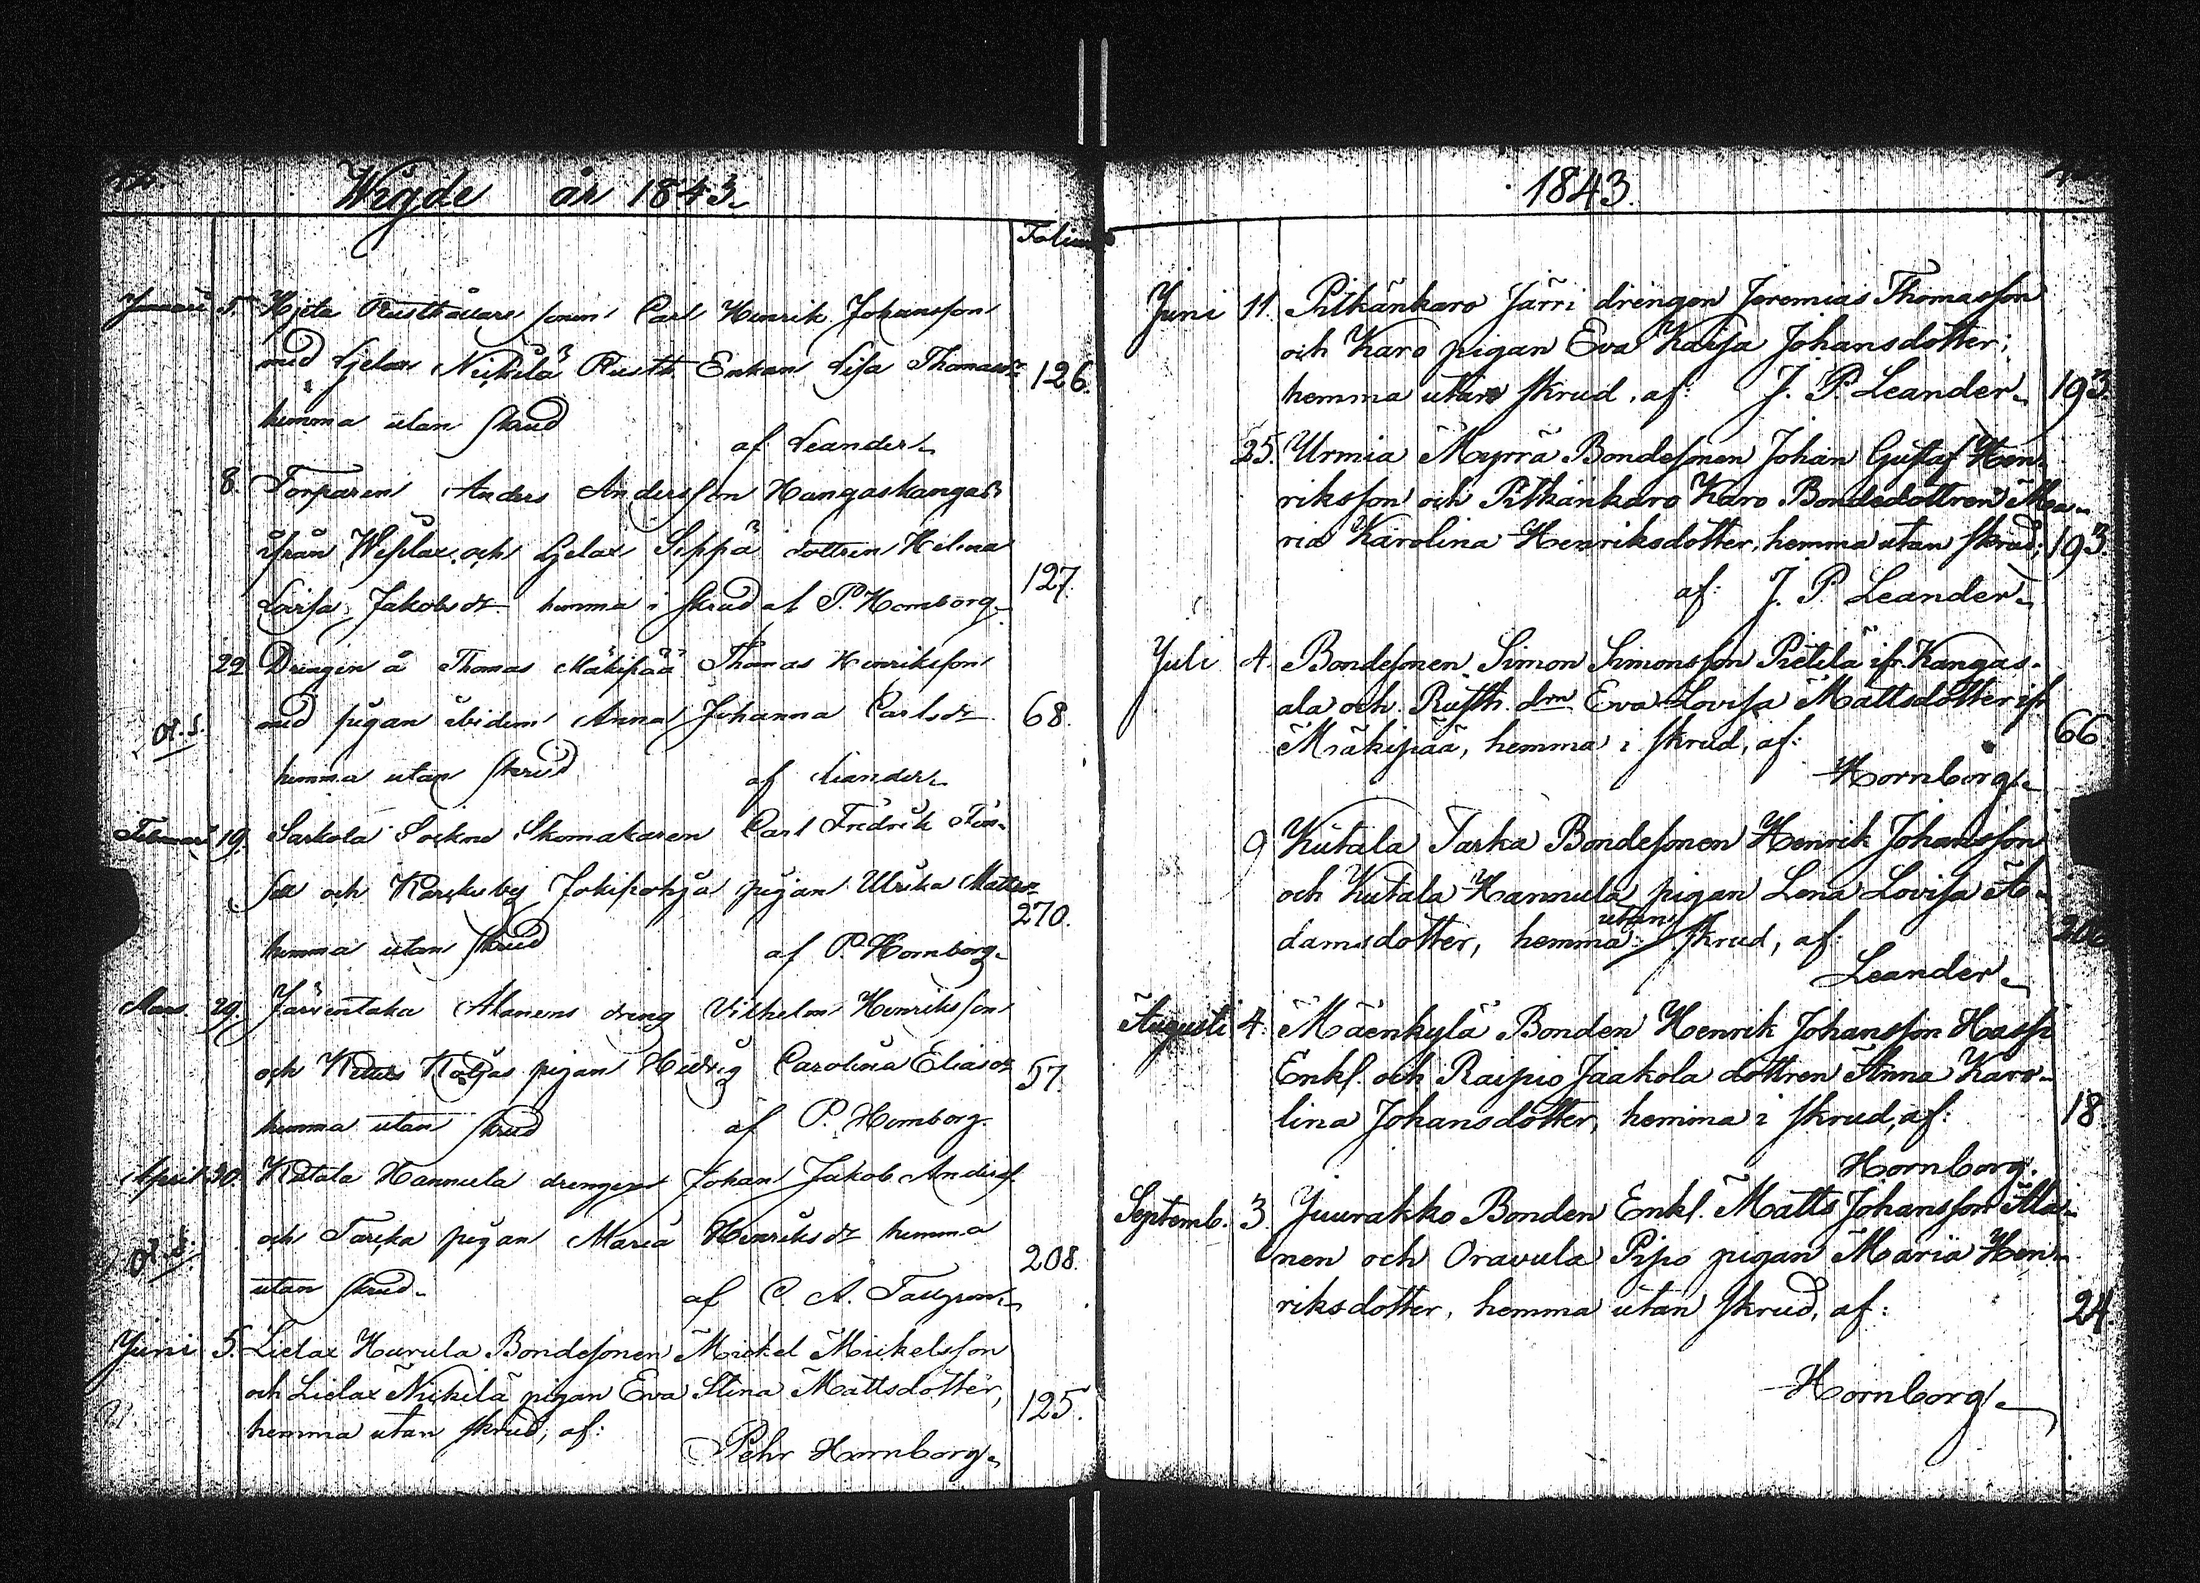 Wigde år 1843.
Folium
Januari 5. Hjeta Rusthållare sonen Carl Henrik Johansson
med Lielax Nickilä Rusth. Enkan Lisa Thomasdr 126.
hemma utan skrud af Leander
8. Torparen Anders Andersson Hangaskangas
ifrån Weslax och Lielax Seppä dottren Helena
Lovisa Jakobsdr hemma i skrud af P. Hornborg 127.
22 Drängen å Thomas Mäkipää Thomas Henriksson
med pigan ibidem Anna Johanna Carlsdr 68.
hemma utan skrud af Leander
Februari 19. Sarkola Sockne Skomakaren Carl Fredrik
och Karsksby Jokipohja pigan Ulrika Mattsdr 270.
hemma utan skrud af P. Hornborg
Mars 29. Järventaka Ahonens dreng Vilhelm Henriksson
och pigan Hedvig Carolina Eliasdr 57.
hemma utan skrud af P. Hornborg
April 30. Kutala Hannula drengen Johan Jakob Andersf.
och Tarkka pigan Maria Henriksdr hemma 208.
utan skrud af C. A.
Juni 5. Lielax Hurula Bondesonen Mickel Mickelsson
och Lielax Nickilä pigan Eva Stina Mattsdotter, 125.
hemma utan skrud, af:
Pehr Hornborg
1843.
Juni 11. Pitkänkaro Järri drengen Jeremias Thomasson
och Karo pigan Eva Kaisa Johansdotter;
hemma utan skrud, af: J. P. Leander 193.
25. Urmia Myrrä Bondesonen Johan Gustaf Hen-
riksson och Pitkänkaro Karo Bondedottren Ma-
ria Karolina Henriksdotter, hemma utan skrud; 193.
af: J. P. Leander
Juli 4. Bondesonen Simon Simonsson Pietilä ifr. Kangas-
ala och Rusth. drn Eva Lovisa Mattsdotter ifr
Mäkipää, hemma i skrud, af: 66
Hornborg
9 Kutala Tarka Bondesonen Henrik Johansson
och Kutala Hannula pigan Lena Lovisa A-
damsdotter, hemma utan skrud, af:
Leander
Augusti 4. Mäenkylä Bonden Henrik Johansson Hassi
Enkl. och Raipio Jaakola dottren Anna Karo-
lina Johansdotter, hemma i skrud, af: 18
Hornborg.
Septemb. 3. Juurakko Bonden Enkl. Matts Johansson Ala-
nen och Oravula Pipo pigan Maria Hen-
riksdotter, hemma utan skrud, af: 24.
Hornborg